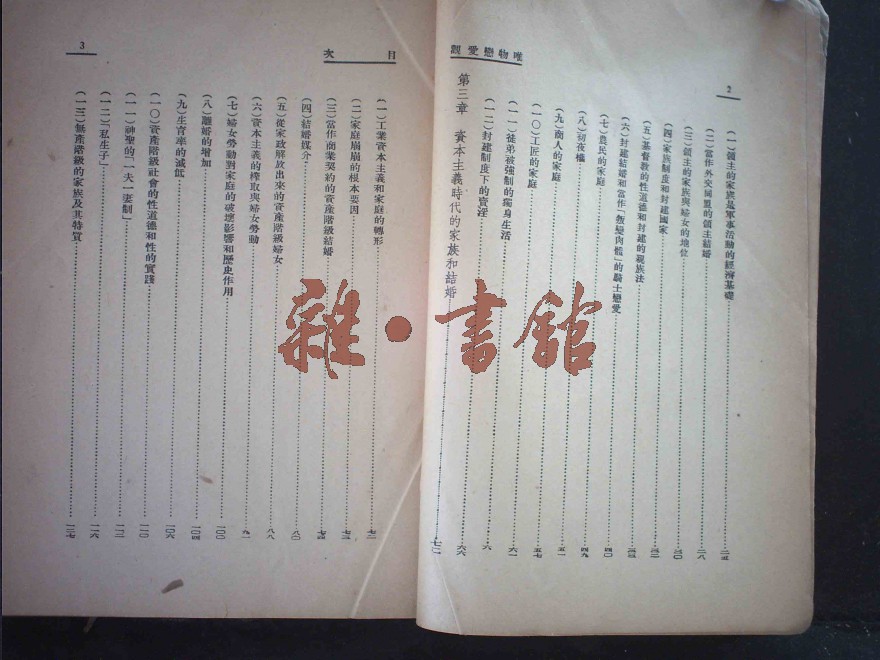 唯物戀愛觀
2
(一)領主的家族是軍事活動的經濟基礎……二五
(二)當作外交同盟的領主結婚……二八
(三)領主的家族與婦女的地位……三〇
(四)家族制度和封建國家……三二
(五)基督教的性道德和封建的親族法……三三
(六)封建結婚和當作「叛變肉體」的騎士戀愛……四〇
(七)農民的家庭……四〇
(八)初夜權……四九
(九)商人的家庭……五一
(一〇)工匠的家庭……五七
(一一)徒弟被強制的獨身生活……六一
(一二)封建制度下的賣淫……六六
第三章 資本主義時代的家族和結婚……七二
目次
3
(一)工業資本主義和家庭的轉形……七二
(二)家庭崩崩的根本要因……七三
(三)當作商業契約的資產階級結婚……七四
(四)結婚媒介……八〇
(五)從家政解放出來的資產階級婦女……八八
(六)資本主義的榨取與婦女勞動……九一
(七)婦女勞動對家庭的破壞影響和歷史作用……一〇〇
(八)離婚的增加……一〇四
(九)生育率的減低……一〇六
(一〇)資產階級社會的性道德和性的實踐……一一〇
(一一)神聖的「一夫一妻制」……一一二
(一二)「私生子」……一一六
(一三)無產階級的家族及其特質……一二七
雜·書館